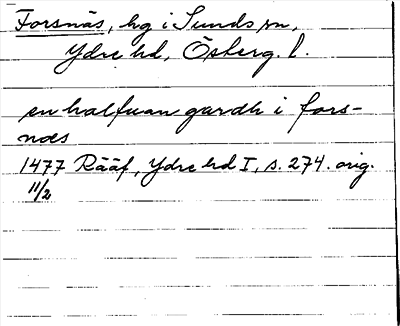 Forsnäs, hg i Sunds sn,
Ydre hd, Österg. l.
en halfuan gardh i fors-
næs
1477 Rääf, Ydre hd I, s. 274. orig.
11/2